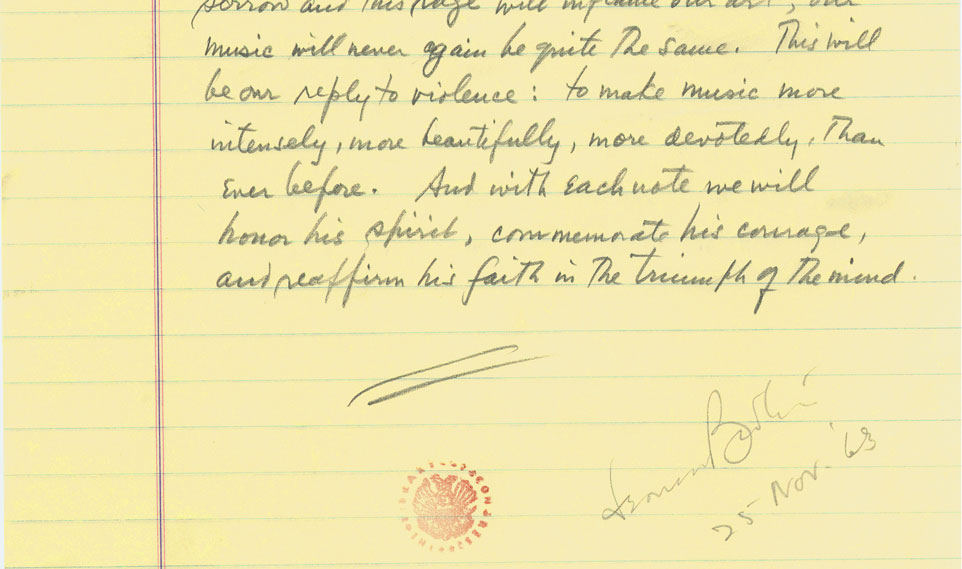 sorrow and this rage will inflame our art; our
music will never again be quite the same. This will
be our reply to violence: to make music more
intensely, more beautifully, more devotedly, than
ever before. And with each note we will
honor his spirit, commemorate his courage,
and reaffirm his faith in the triumph of the mind.
Leonard Bernstein
25 Nov. '63